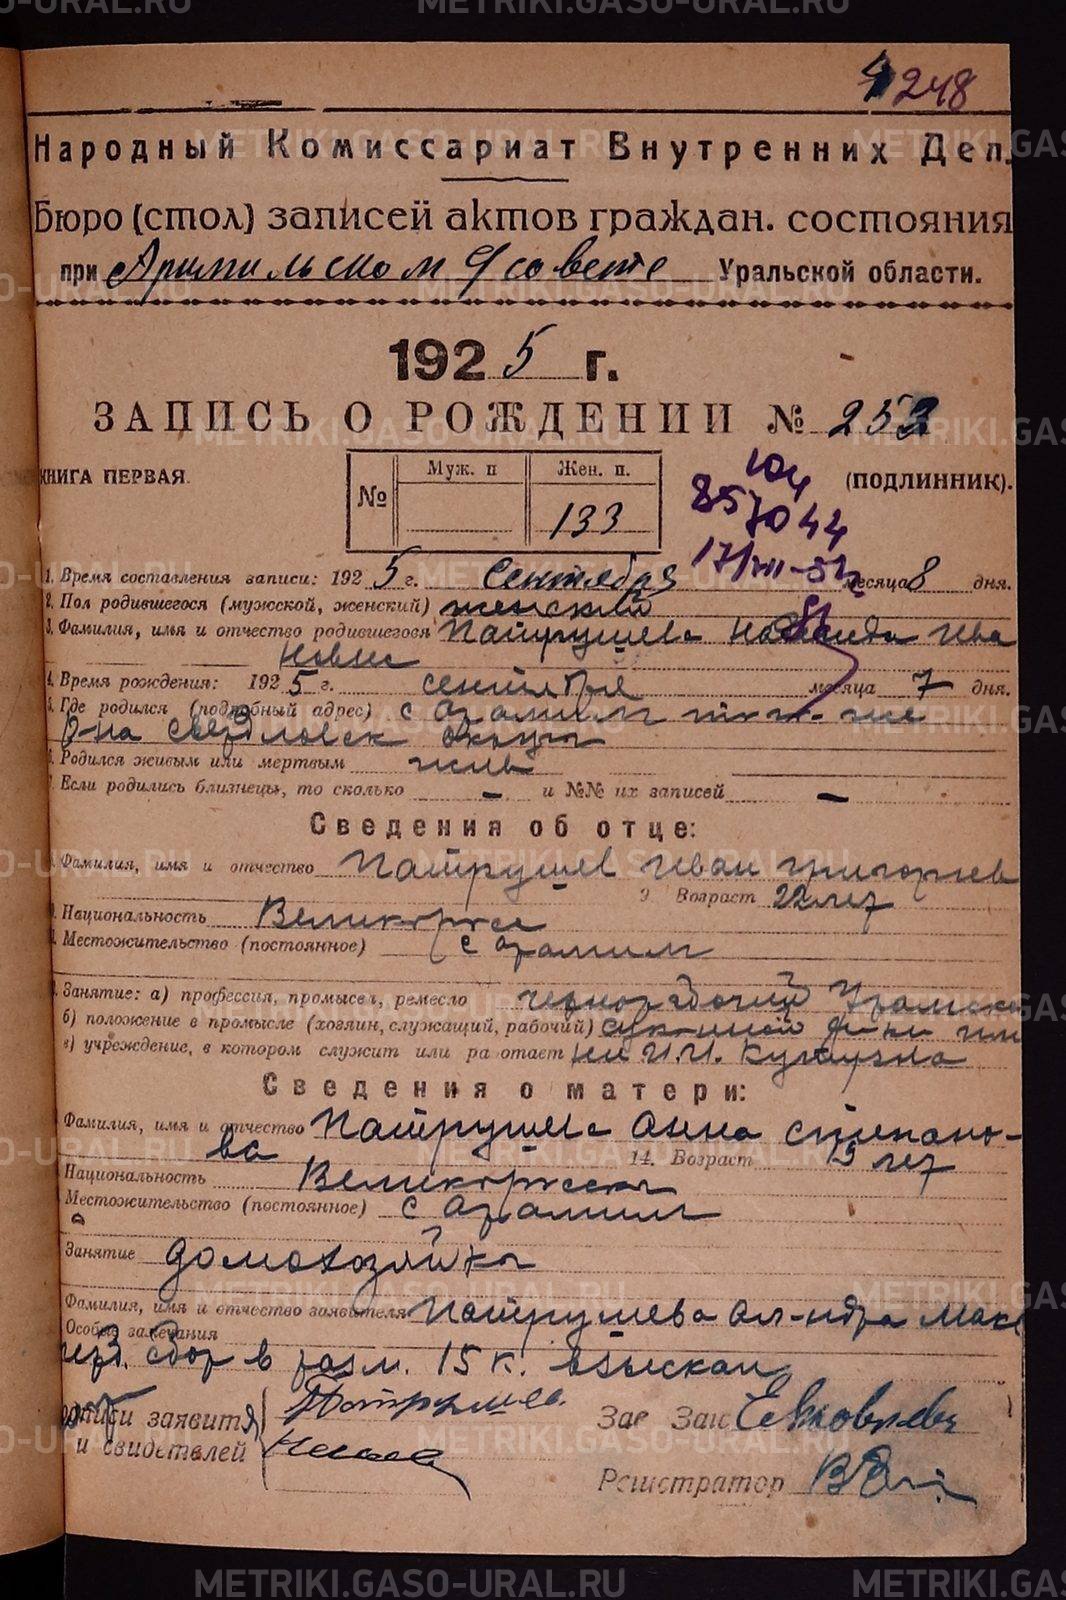 248
Народный Комиссариат Внутренних Дел.
Бюро (стол) записей актов граждан. состояния
при Арамильском совете Уральской области.
1925 г.
ЗАПИСЬ О РОЖДЕНИИ № 253
КНИГА ПЕРВАЯ. № Муж. п Жен. п. (ПОДЛИННИК).
133
857044
17/VIII-51
1. Время составления записи: 1925 г. Сентября месяца 8 дня.
2. Пол родившегося (мужской, женский) женский
3. Фамилия, имя и отчество родившегося Патрушева Ива
новна
4. Время рождения: 1925 г. сентября месяца 7 дня.
5. Где родился (подробный адрес) с Арамиль
р-на Свердловск округа
6. Родился живым или мертвым жив
7. Если родились близнецы, то сколько — и №№ их записей —
Сведения об отце:
Фамилия, имя и отчество Патрушев Иван Григорьев
9 Возраст 22 лет
Национальность Великоросс
Местожительство (постоянное) с Арамиль
Занятие: а) профессия, промысел, ремесло чернорабочий Арамильск
б) положение в промысле (хозяин, служащий, рабочий) суконной ф-ки им
в) учреждение, в котором служит или ра отает
Сведения о матери:
Фамилия, имя и отчество Патрушева Анна Степано-
ва 14. Возраст 19 лет
Национальность Великоросска
Местожительство (постоянное) с Арамиль
Занятие домохозяйка
Фамилия, имя и отчество заявителя Патрушева Ал-ндра Макс
Особые замечания
сбор в разм. 15 к. взыскан
подписи заявителя Патрушев
и свидетелей
Зав Загс
Регистратор
METRIKI.GASO-URAL.RU